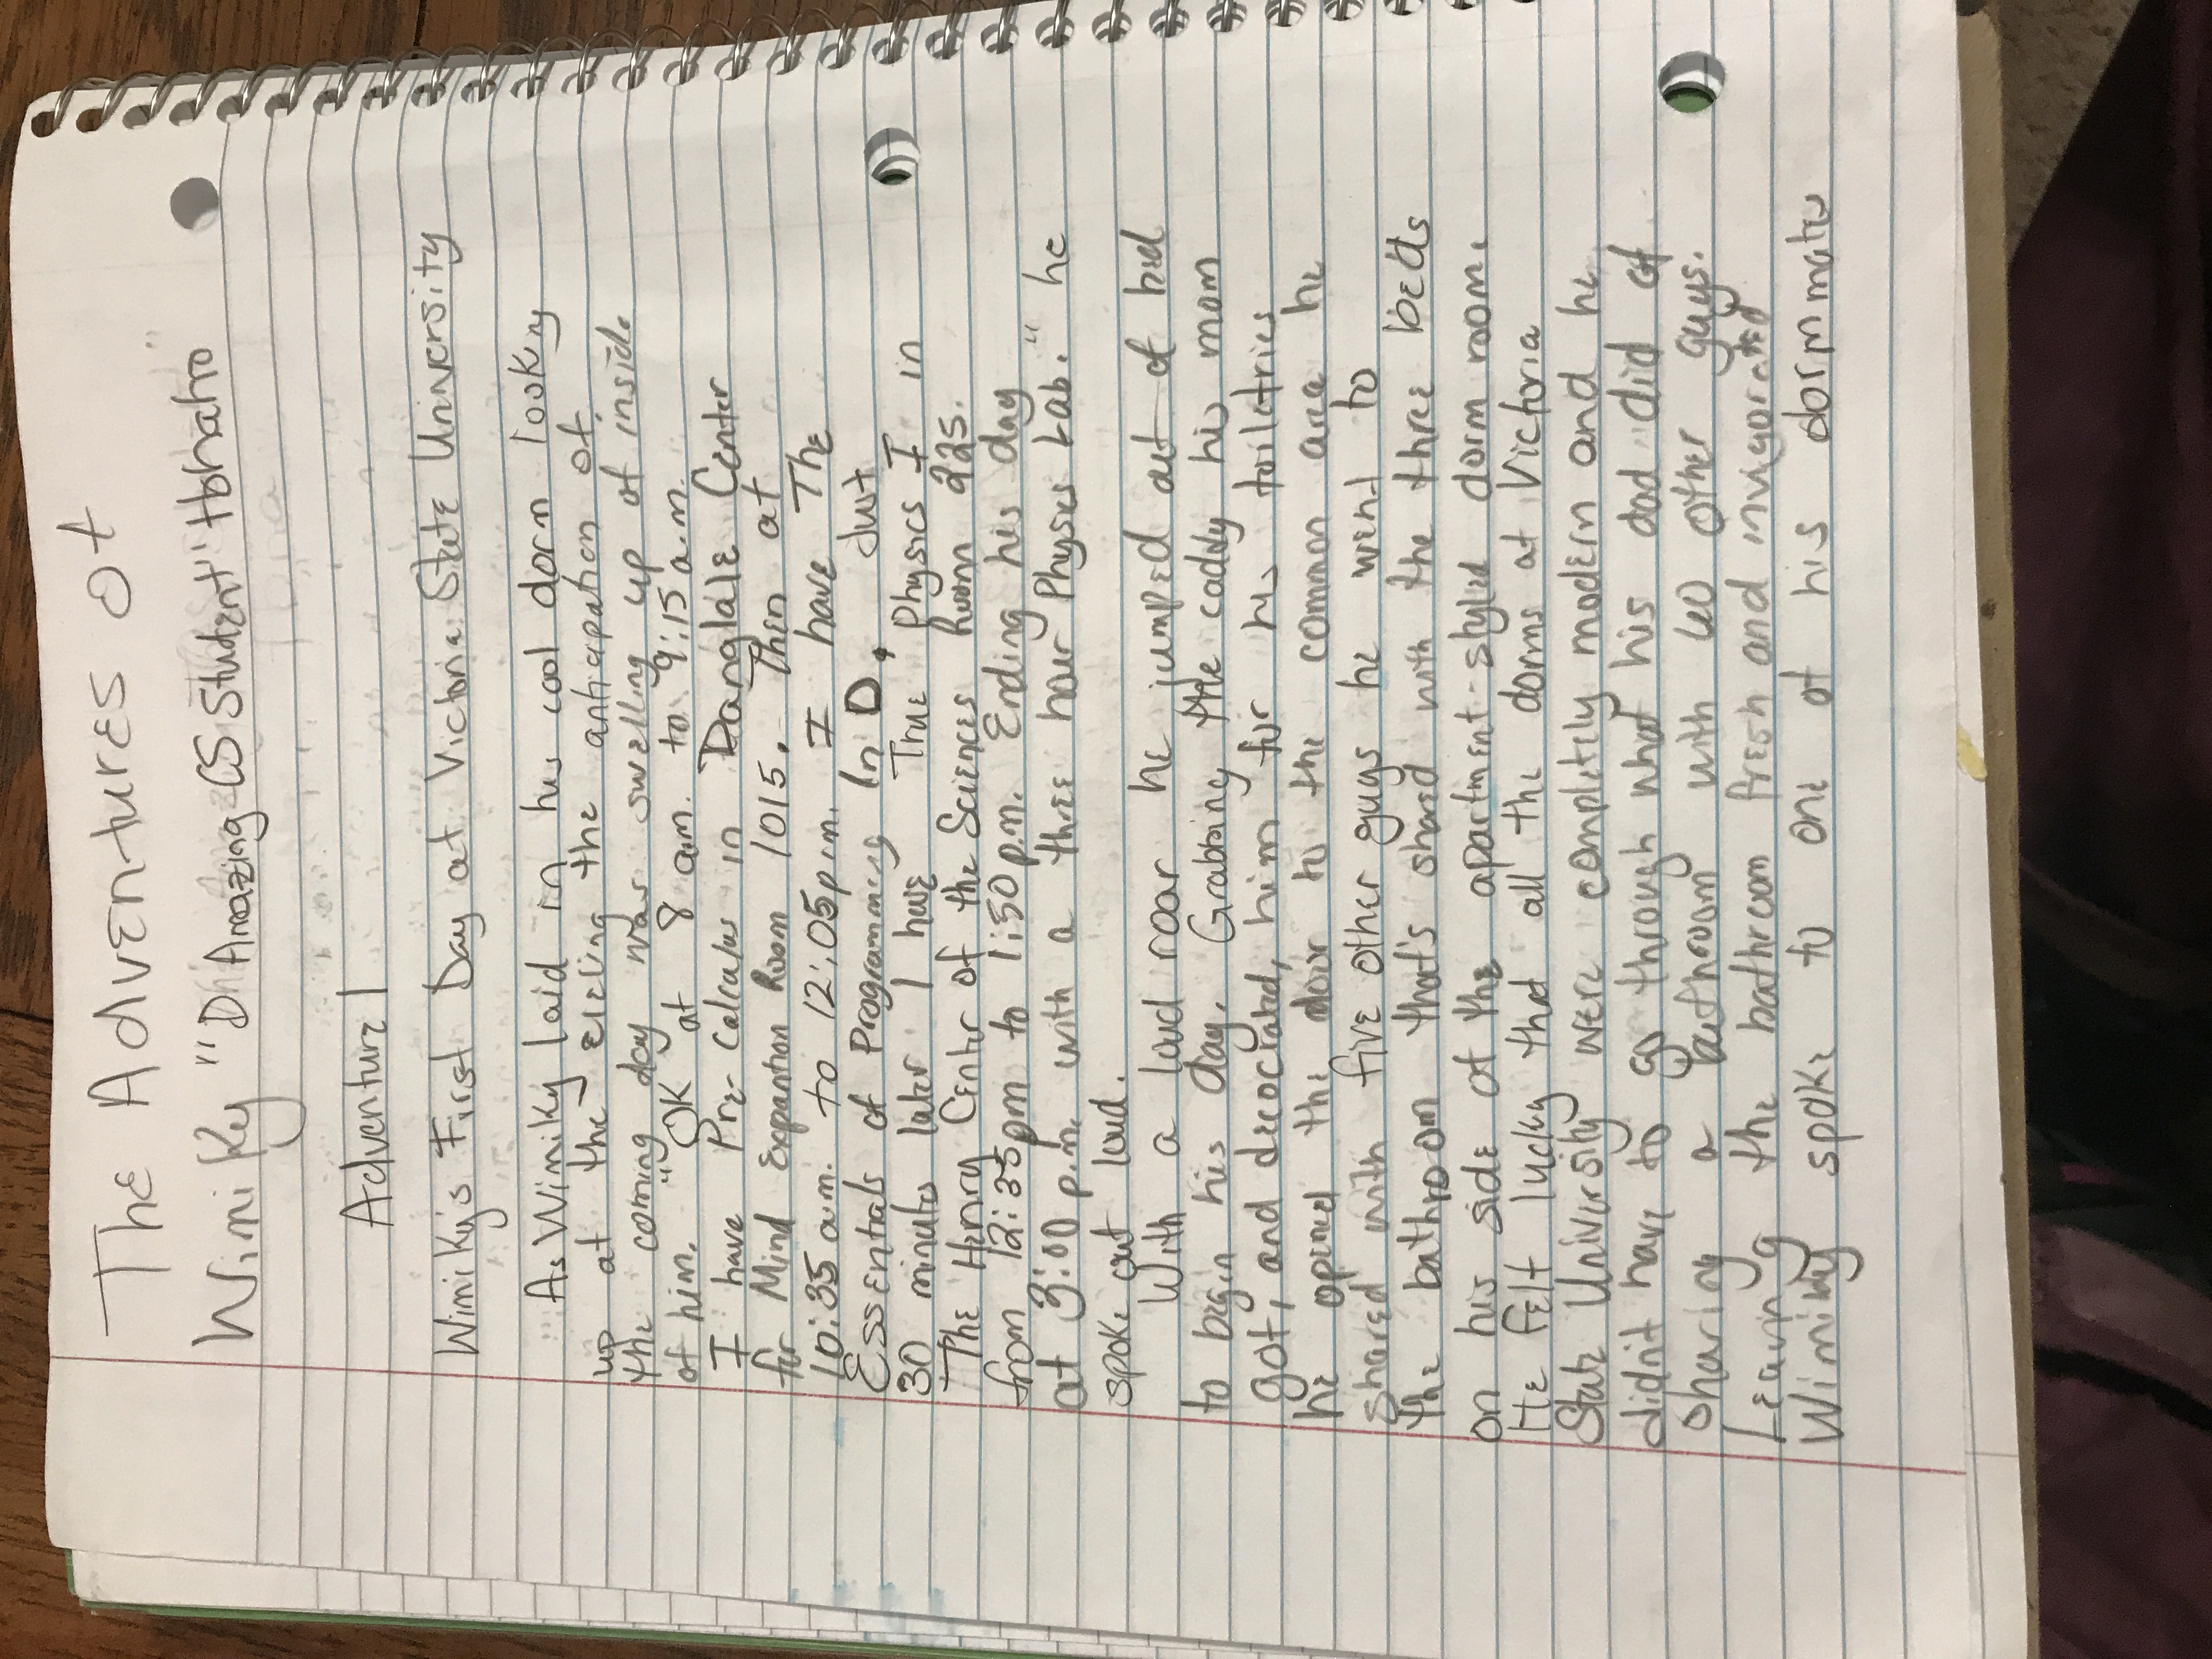 The Adventures of
Wimiky "D Amazing CS Student" Hohaho
Adventure 1
Wimiky's First Day at Victoria State University
As Wimiky laid in his cool dorm looking
up at the the anticapation of
the coming day was swelling up of inside
of him. "OK at 8 a.m. to 9:15 a.m.
I have Pre-Calculus in Danglale Center
for Mind Expantion Room 1015. Then at
10:35 a.m. to 12:05 p.m. I have The
Essentials of Programming In D. Just
30 minutes later I have True Physics I in
The Henry Center of the Sciences Room 225.
from 12:35 pm to 1:50 p.m. Ending his day
at 3:00 p.m. with a three hour Physics Lab." he
spoke out loud.
With a loud roar he jumped out of bed
to begin his day. Grabbing the caddy his mom
got, and decocrated, him for his toiletries
he opened the door to the common area he
shared with five other guys he went to
the bathroom that's shared with the three beds
on his side of the apartment-styled dorm room.
He felt lucky that all the dorms at Victoria
State University were completely modern and he
didn't have to go through what his dad did of
sharing a bathroom with 60 other guys.
Leaving the bathroom fresh and invigorated
Wimiky spoke to one of his dormmates